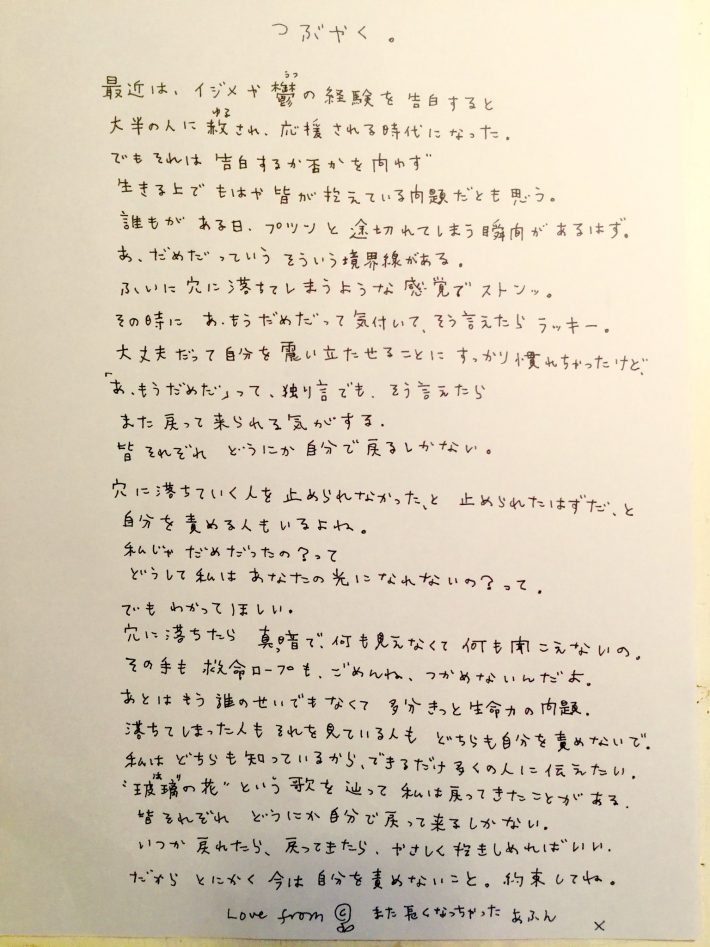 つぶやく。
最近は、イジメや鬱(うつ)の経験を告白すると
大半の人に赦(ゆる)され、応援される時代になった。
でもそれは告白するか否かを問わず
生きる上でもはや皆が抱えている問題だとも思う。
誰もがある日、プツンと途切れてしまう瞬間があるはず。
あ、だめだっていうそういう境界線がある。
ふいに穴に落ちてしまうような感覚でストンッ。
その時にあ、もうだめだって気付いて、そう言えたらラッキー。
大丈夫だって自分を震い立たせることにすっかり慣れちゃったけど、
「あ、もうだめだ」って、独り言でも、そう言えたら
また戻って来られる気がする。
皆それぞれどうにか自分で戻るしかない。
穴に落ちていく人を止められなかった、と止められたはずだ、と
自分を責める人もいるよね。
私じゃだめだったの?って
どうして私はあなたの光になれないの?って。
でもわかってほしい。
穴に落ちたら真っ暗で、何も見えなくて何も聞こえないの。
その手も救命ロープも、ごめんね、つかめないんだよ。
あとはもう誰のせいでもなくて多分きっと生命力の問題。
落ちてしまった人もそれを見ている人もどちらも自分を責めないで。
私はどちらも知っているから、できるだけ多くの人に伝えたい。
"玻璃(はり)の花"という歌を辿って私は戻ってきたことがある。
皆それぞれどうにか自分で戻って来るしかない。
いつか戻れたら、戻ってきたら、やさしく抱きしめればいい。
だからとにかく今は自分を責めないこと。約束してね。
Love from © また長くなっちゃった あふん ×